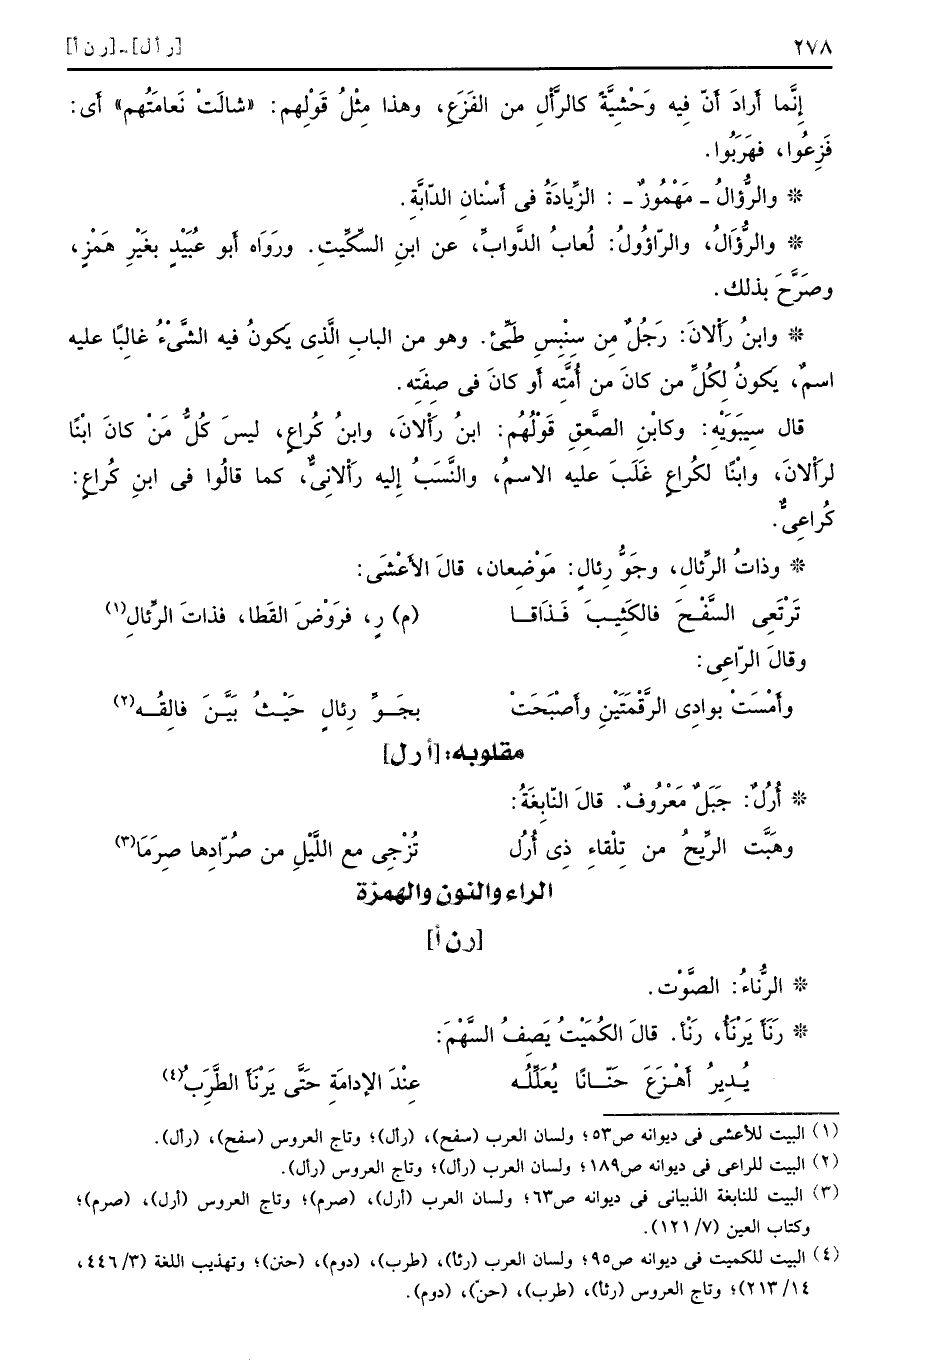 ٢٧٨
[ر أ ل] ـ [ر ن أ]
إِنَّما أَرادَ أَنّ فيه وَحْشيَّةً كالرَّأْلِ من الفَزَعِ، وهذا مِثْلُ قَوْلِهم: «شالَتْ نَعامَتُهم» أى:
فَزِعُوا، فهَرَبُوا.
* والرُّؤالُ ـ مَهْمُوزٌ ـ : الزِّيادَةُ فى أَسْنانِ الدّابَّةِ.
* والرُّؤَالُ، والرّاؤُولُ: لُعابُ الدَّوابِّ، عن ابنِ السِّكِّيتِ. ورَوَاه أَبو عُبَيْدٍ بغَيْرِ هَمْزٍ،
وصَرَّحَ بذلك.
* وابنُ رَأْلانَ: رَجُلٌ مِن سِنْبِسِ طَيِّئ. وهو من البابِ الَّذِى يَكونُ فيه الشَّىْءُ غالبًا عليه
اسمٌ، يَكونُ لكُلِّ من كانَ من أُمَّتِه أو كانَ فى صِفَتِه.
قال سِيبَوَيْهِ: وكابْنِ الصَّعِقِ قَوْلُهُم: ابنُ رَأْلانَ، وابنُ كُراعٍ، ليسَ كُلُّ مَنْ كانَ ابنًا
لرَأْلانَ، وابنًا لكُراعٍ غَلَبَ عليه الاسمُ، والنَّسَبُ إليه رَأْلانِىٌّ، كما قالُوا فى ابنِ كُراعٍ:
كُراعِىٌّ.
* وذاتُ الرِّئالِ، وجَوُّ رِئالٍ: مَوْضِعان، قالَ الأَعْشَى:
تَرْتَعِى السَّفْحَ فالكَثِيبَ فَذَاقا (م) رٍ، فرَوْضَ القَطا، فذاتَ الرِّئالِ(١)
وقالَ الرّاعِى:
وأَمْسَتْ بوادِى الرَّقْمَتَيْنِ وأَصْبَحَتْ بجَوِّ رِئالٍ حَيْثُ بَيَّنَ فالِقُه(٢)
مقلوبه: [أ ر ل]
* أُرُلٌ: جَبَلٌ مَعْرُوفٌ. قالَ النّابِغَةُ:
وهَبَّت الرِّيحُ من تِلْقاءِ ذِى أُرُلٍ تُزْجِى مع اللَّيْلِ من صُرّادِها صِرَمَا(٣)
الراء والنون والهمزة
[ر ن أ]
* الرُّناءُ: الصَّوْت.
* رَنَأَ يَرْنَأُ، رَنْأ. قالَ الكُمَيْتُ يَصِفُ السَّهْمَ:
يُدِيرُ أَهْزَعَ حَنّانًا يُعَلِّلُه عِنْدَ الإِدامَةِ حَتَّى يَرْنَأَ الطَّرَبُ(٤)
(١) البيت للأعشى فى ديوانه ص٥٣؛ ولسان العرب (سفح)، (رأل)؛ وتاج العروس (سفح)، (رأل).
(٢) البيت للراعى فى ديوانه ص١٨٩؛ ولسان العرب (رأل)؛ وتاج العروس (رأل).
(٣) البيت للنابغة الذبيانى فى ديوانه ص٦٣؛ ولسان العرب (أرل)، (صرم)؛ وتاج العروس (أرل)، (صرم)؛
وكتاب العين (٧/ ١٢١).
(٤) البيت للكميت فى ديوانه ص٩٥؛ ولسان العرب (رنأ)، (طرب)، (دوم)، (حنن)؛ وتهذيب اللغة (٣/ ٤٤٦،
١٤/ ٢١٣)؛ وتاج العروس (رنأ)، (طرب)، (حنّ)، (دوم).